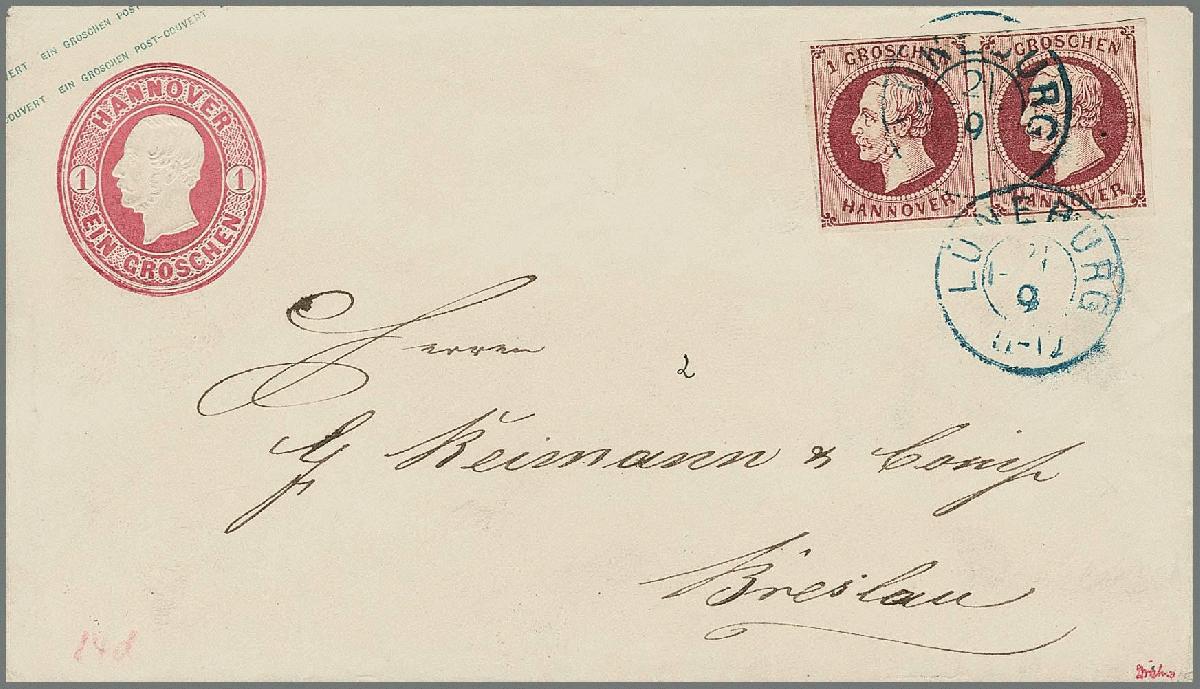 EIN GROSCHEN POST
VERT EIN GROSCHEN POST-COUVERT
COUVERT
HANNOVER
1 1
EIN GROSCHEN
1 GROSCHEN
HANNOVER
GROSCHEN
HANNOVER
LÜNEBURG
21
9
LÜNEBURG
21
9
Herren
2
Reimann & Comp
Breslau
14d